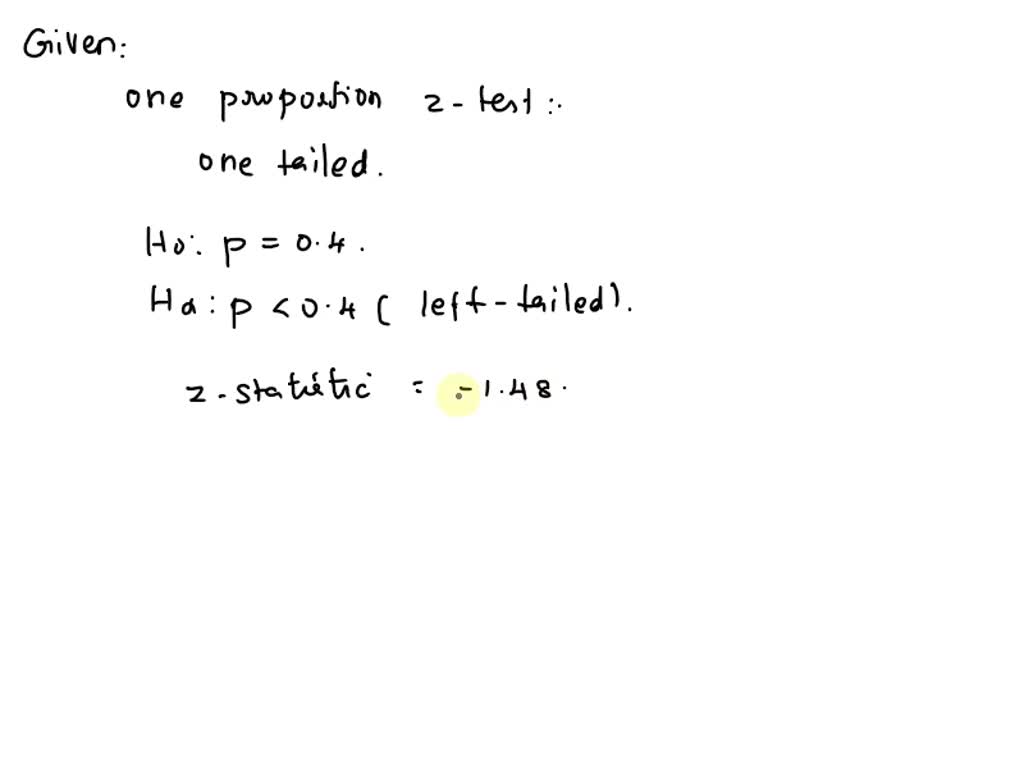 Given:
one proportion z-test:.
one tailed.
Ho: p = 0.4.
Ha: p < 0.4 ( left-tailed).
z-statistic = -1.48.